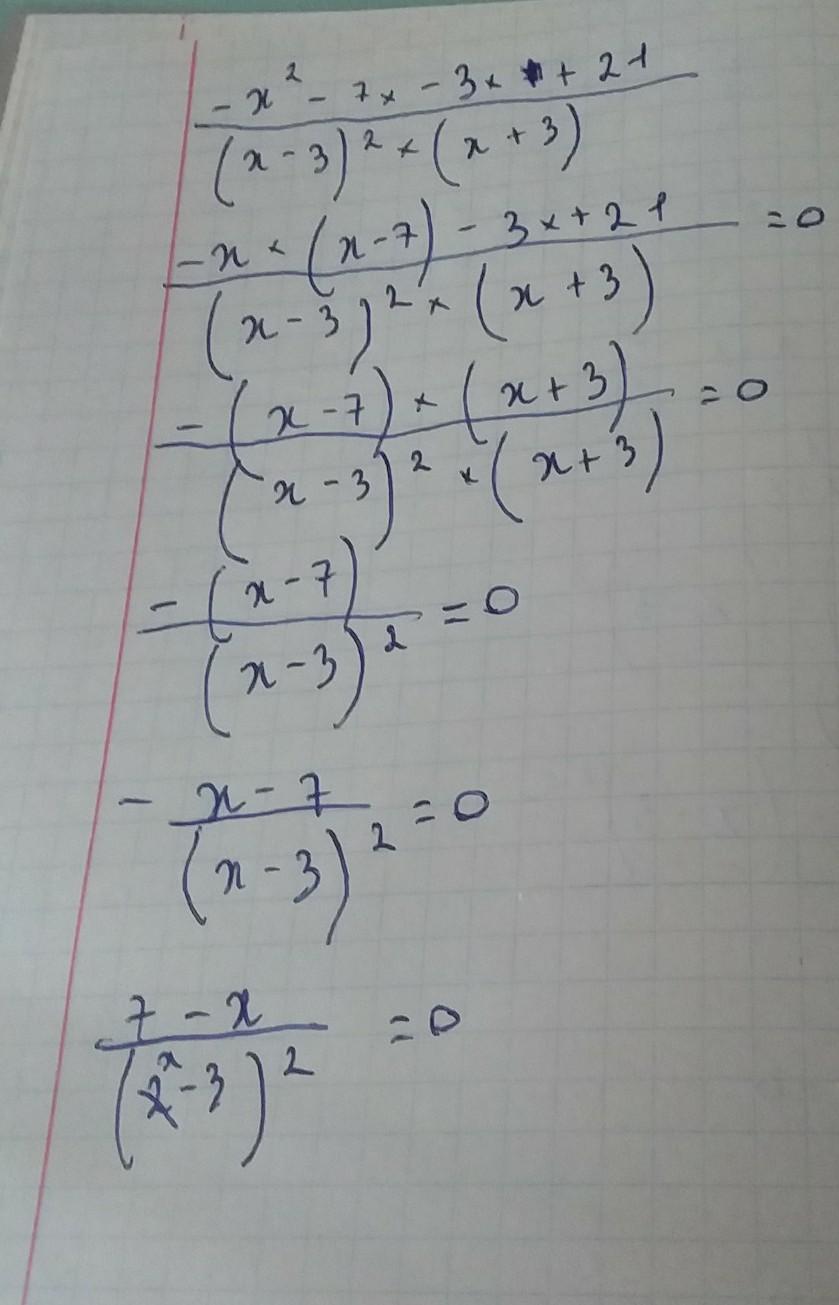 -x² - 7x - 3x + 21
(x - 3)² × (x + 3)
-x × (x - 7) - 3x + 21 = 0
(x - 3)² × (x + 3)
-(x - 7) × (x + 3) = 0
(x - 3)² × (x + 3)
-(x - 7) = 0
(x - 3)²
- x - 7 = 0
(x - 3)²
7 - x = 0
(x - 3)²